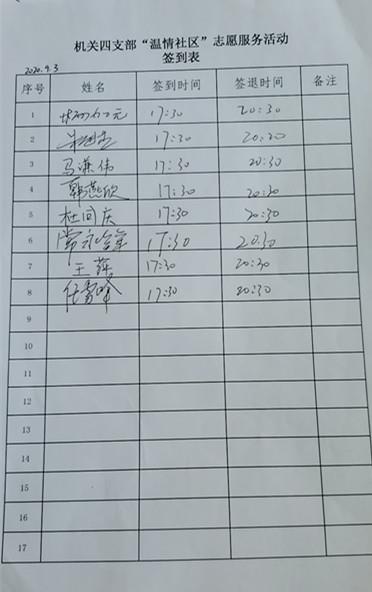 机关四支部“温情社区”志愿服务活动
签到表
2020.9.3
序号 姓名 签到时间 签退时间 备注
1 17:30 20:30
2 17:30 20:20
3 马谦伟 17:30 20:30
4 韩燕欣 17:30 20:30
5 杜同庆 17:30 20:30
6 17:30 20:30
7 王萍 17:30 20:30
8 任雪峰 17:30 20:30
9
10
11
12
13
14
15
16
17